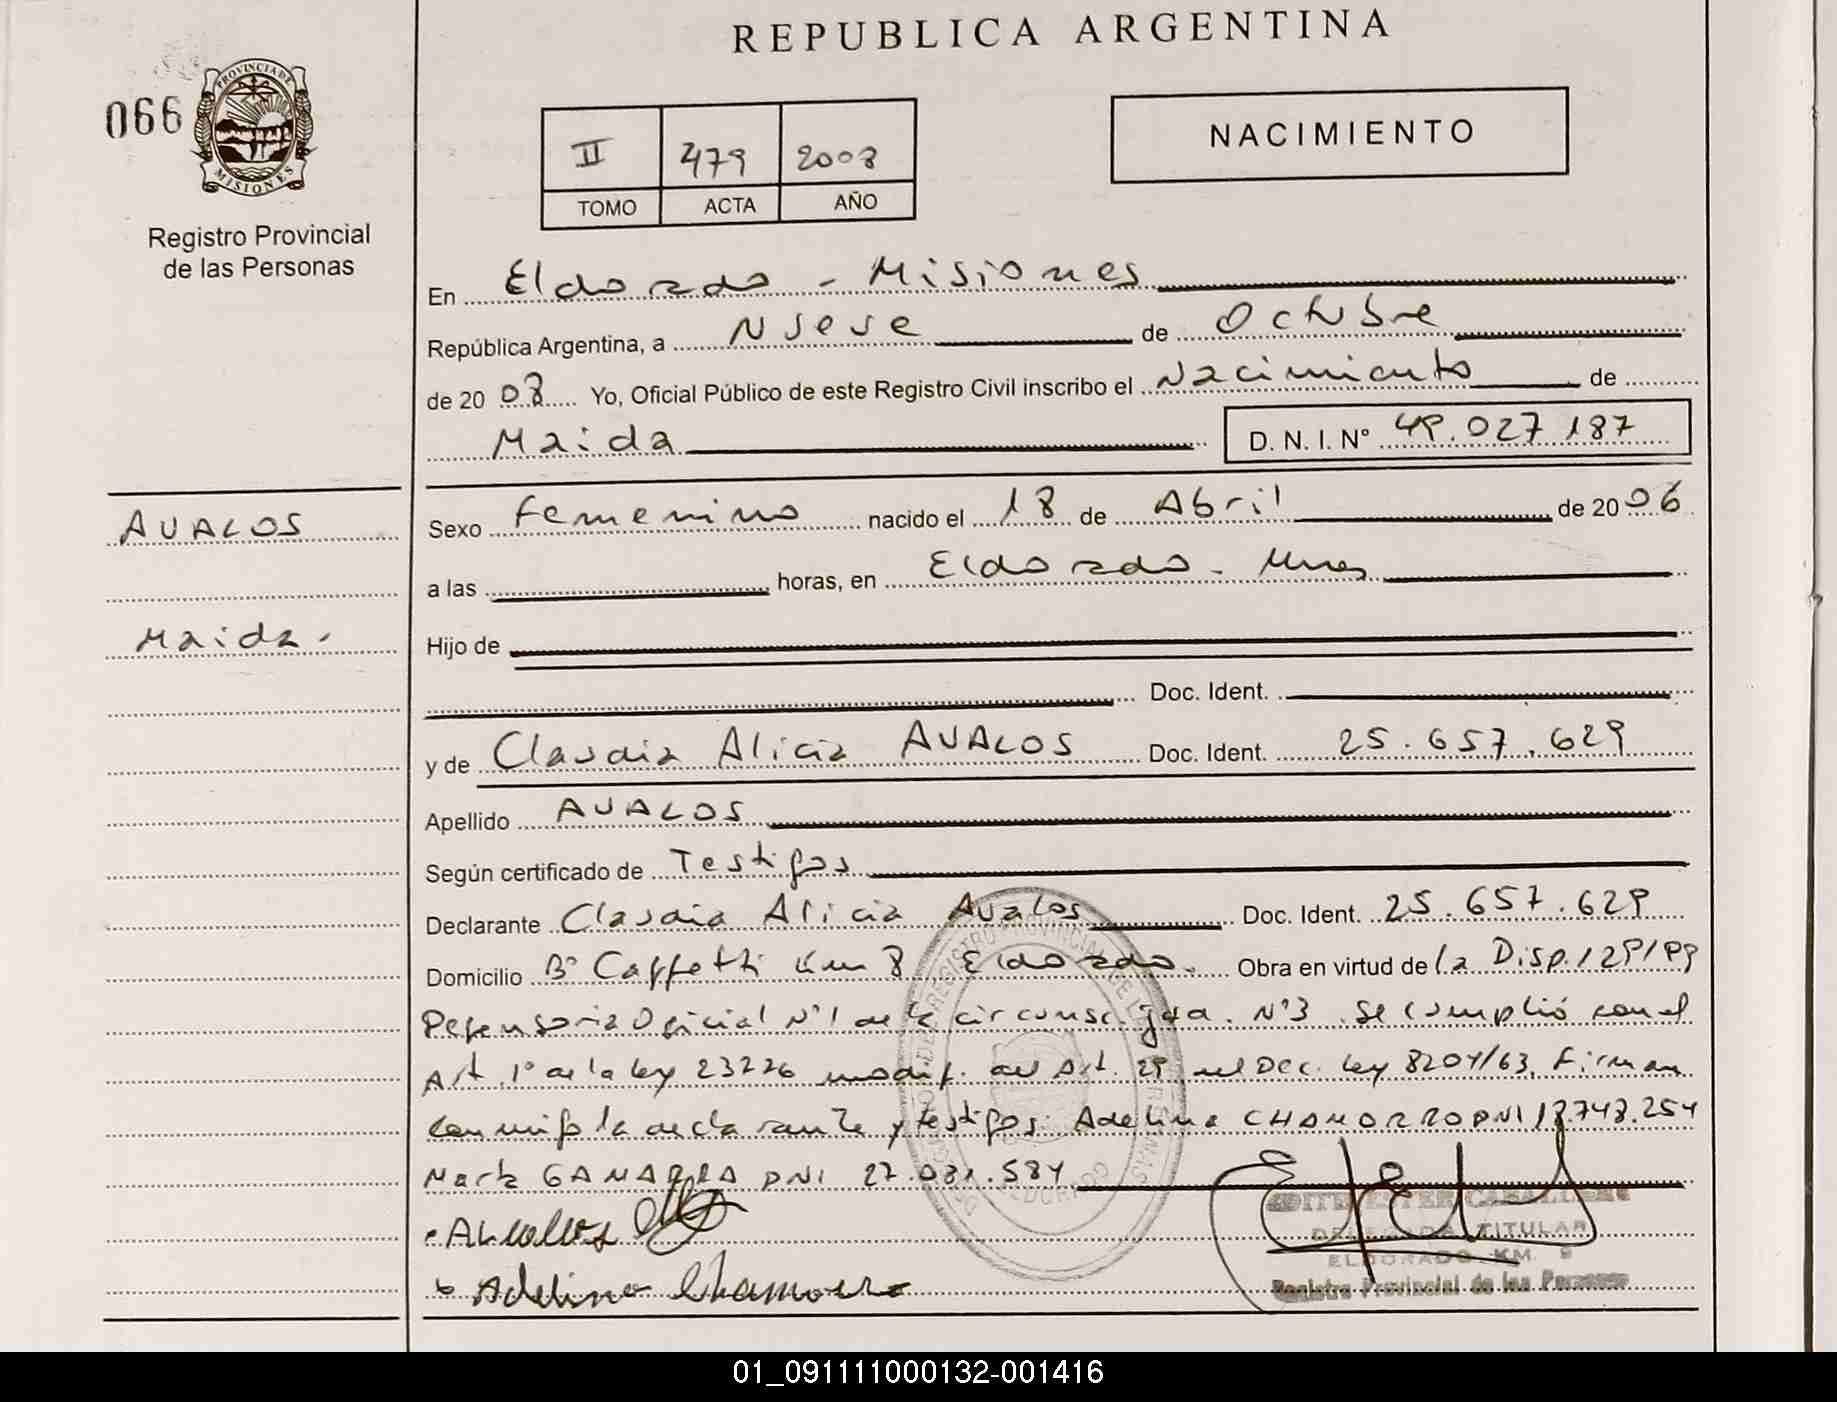 REPUBLICA ARGENTINA
066
PROVINCIA DE MISIONES
Registro Provincial
de las Personas
II 479 2008
TOMO ACTA AÑO
NACIMIENTO
En Eldorado - Misiones
República Argentina, a Nueve de Octubre
de 20 08 Yo, Oficial Público de este Registro Civil inscribo el Nacimiento de
Maida D. N. I. N° 49.027.187
AVALOS
Maida.
Sexo Femenino nacido el 18 de Abril de 20 06
a las horas, en Eldorado - Mnes
Hijo de
Doc. Ident.
y de Claudia Alicia AVALOS Doc. Ident. 25.657.629
Apellido AVALOS
Según certificado de Testigos
Declarante Claudia Alicia Avalos Doc. Ident. 25.657.629
Domicilio B° Caffetti Km 8 Eldorado. Obra en virtud de la Disp. 129/99
Defensoria Oficial N°1 de la circunsc. Jda. N°3. Se cumplió con el
Art. 1° de la ley 23226 modif. del Art. 29 del Dec. Ley 8204/63. Firman
conmigo la declarante y testigos: Adelina CHAMORRO DNI 18.748.254
Marta GAMARRA DNI 27.031.584
Adelina Chamorro
EDITH ESTER CABALLERO
DELEGADA TITULAR
ELDORADO KM. 9
Registro Provincial de las Personas
01_091111000132-001416